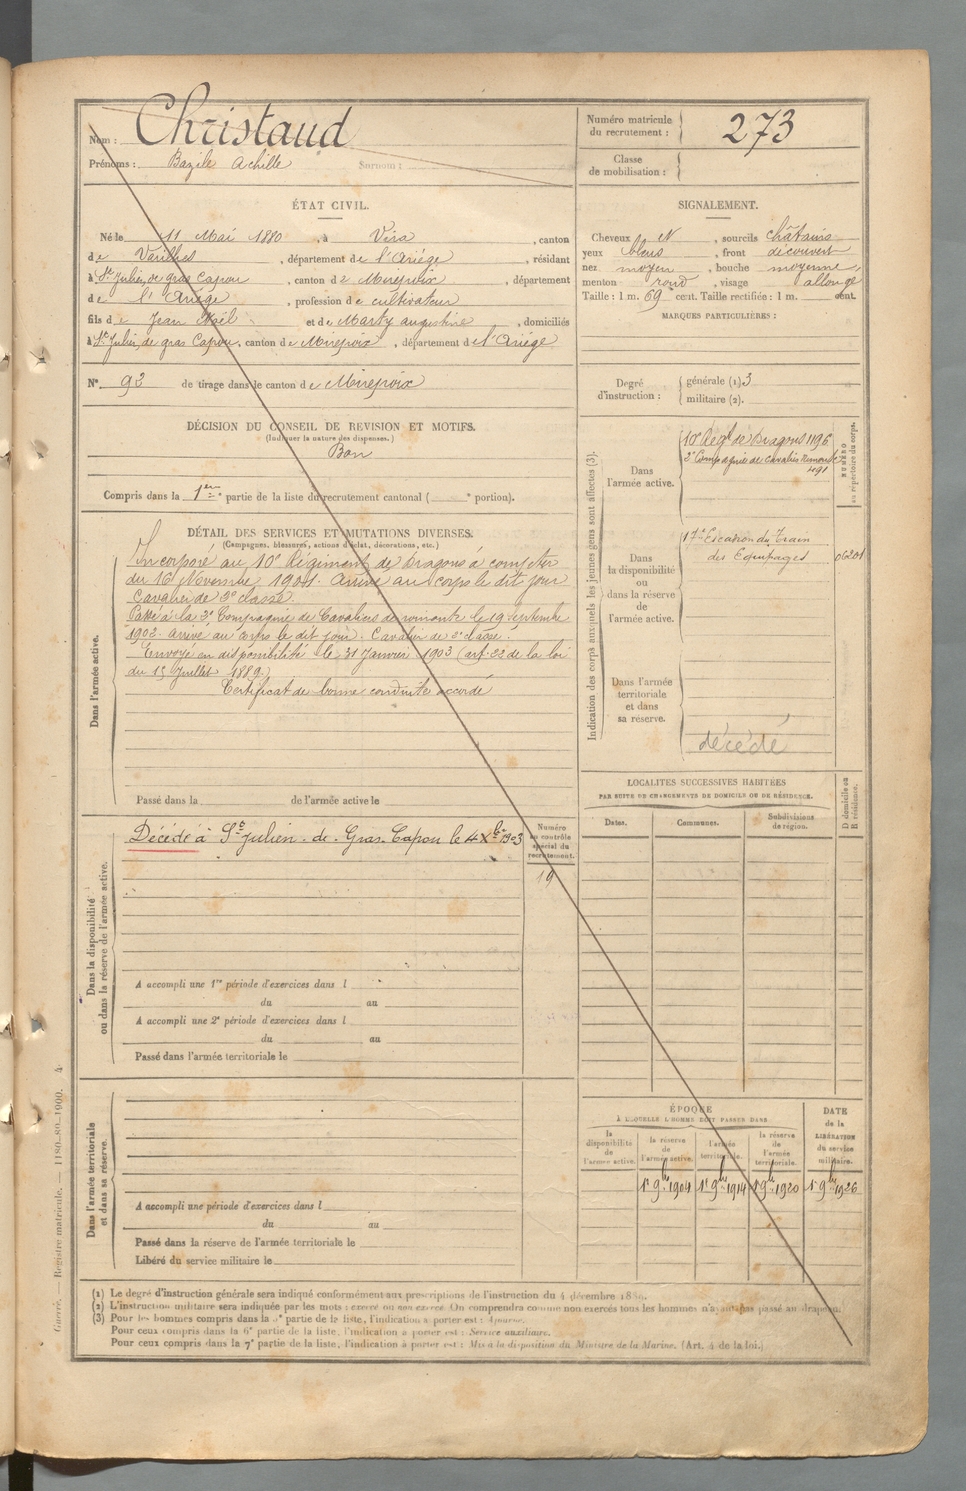 Nom : Christaud
Prénoms : Bazile Achille Surnom :
Numéro matricule du recrutement : 273
Classe de mobilisation :
ÉTAT CIVIL.
Né le 11 Mai 1880, à Vira, canton
de Varilhes, département de l'Ariège, résidant
à St Julien de gras Capou, canton de Mirepoix, département
de l'Ariège, profession de cultivateur
fils de Jean Noël et de Marty augustine, domiciliés
à St Julien de gras Capou, canton de Mirepoix, département de l'Ariège
N° 92 de tirage dans le canton de Mirepoix
SIGNALEMENT.
Cheveux et, sourcils châtains
yeux bleus, front découvert
nez moyen, bouche moyenne,
menton rond, visage allongé
Taille : 1 m. 69 cent. Taille rectifiée : 1 m. cent.
MARQUES PARTICULIÈRES :
Degré d'instruction : générale (1) 3
militaire (2).
DÉCISION DU CONSEIL DE REVISION ET MOTIFS.
(Indiquer la nature des dispenses.)
Bon
Compris dans la 1ère partie de la liste du recrutement cantonal ( e portion).
DÉTAIL DES SERVICES ET MUTATIONS DIVERSES.
(Campagnes, blessures, actions d'éclat, décorations, etc.)
Dans l'armée active.
Incorporé au 10e Régiment de Dragons à compter
du 16 Novembre 1901. Arrivé au corps le dit jour
Cavalier de 2e classe.
Passé à la 3e Compagnie de Cavaliers de remonte le 19 septembre
1902. arrivé au corps le dit jour. Cavalier de 2e classe.
Envoyé en disponibilité le 31 Janvier 1903 (art. 22 de la loi
du 15 Juillet 1889.)
Certificat de bonne conduite accordé
Passé dans la de l'armée active le
Indication des corps auxquels les jeunes gens sont affectés (3).
NUMÉRO au répertoire du corps.
Dans l'armée active.
10e Régt de Dragons 1196
Compagnie de Cavaliers Remonte
491
Dans la disponibilité ou dans la réserve de l'armée active.
17e Escadron du Train
des Equipages
Dans l'armée territoriale et dans sa réserve.
décédé
LOCALITÉS SUCCESSIVES HABITÉES
PAR SUITE DE CHANGEMENTS DE DOMICILE OU DE RÉSIDENCE.
Dates. Communes. Subdivisions de région. D domicile ou R résidence.
Dans la disponibilité ou dans la réserve de l'armée active.
Décédé à St Julien-de-Gras-Capou le 4 Xbre 1903
Numéro au contrôle spécial du recrutement.
19
A accompli une 1re période d'exercices dans l
du au
A accompli une 2e période d'exercices dans l
du au
Passé dans l'armée territoriale le
Dans l'armée territoriale et dans sa réserve.
A accompli une période d'exercices dans l
du au
Passé dans la réserve de l'armée territoriale le
Libéré du service militaire le
ÉPOQUE
À LAQUELLE L'HOMME DOIT PASSER DANS
la disponibilité de l'armée active.
la réserve de l'armée active.
l'armée territoriale.
la réserve de l'armée territoriale.
DATE de la LIBÉRATION du service militaire.
1er 9bre 1904 1er 9bre 1914 1er 9bre 1920 1er 9bre 1926
(1) Le degré d'instruction générale sera indiqué conformément aux prescriptions de l'instruction du 4 décembre 1889.
(2) L'instruction militaire sera indiquée par les mots : exercé ou non exercé. On comprendra comme non exercés tous les hommes n'ayant pas passé au drapeau.
(3) Pour les hommes compris dans la 5e partie de la liste, l'indication à porter est : Ajourné.
Pour ceux compris dans la 6e partie de la liste, l'indication à porter est : Service auxiliaire.
Pour ceux compris dans la 7e partie de la liste, l'indication à porter est : Mis à la disposition du Ministre de la Marine. (Art. 4 de la loi.)
Guerre. — Registre matricule. — 1180-89-1900. 4.